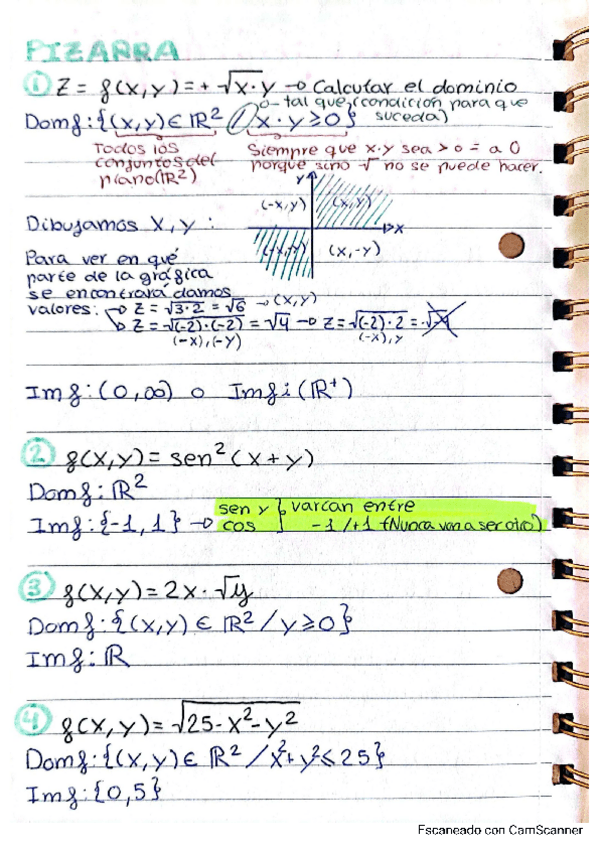 PIZARRA
① Z = f(x,y) = + √x·y → Calcular el dominio
→ tal que (condición para que suceda)
Dom f: {(x,y) ∈ ℝ² / x·y ≥ 0}
Todos los conjuntos del plano (ℝ²)
Siempre que x·y sea > o = a 0 porque sino √ no se puede hacer.
Y
(-x,y) (x,y)
X
Dibujamos X, y :
(-x,-y) (x,-y)
Para ver en qué
parte de la gráfica
se encontrará damos
valores: → Z = √3·2 = √6 → (x,y)
→ Z = √(-2)·(-2) = √4 → Z = √(-2)·2 = √-4
(-x),(-y) (-x),y
Im f: (0,∞) o Im f: (ℝ⁺)
② f(x,y) = sen² (x+y)
Dom f: ℝ²
Im f: {-1, 1} → sen y cos } varían entre -1/+1 (Nunca van a ser otro)
③ f(x,y) = 2x·√y
Dom f: {(x,y) ∈ ℝ² / y ≥ 0}
Im f: ℝ
④ f(x,y) = √25-x²-y²
Dom f: {(x,y) ∈ ℝ² / x²+y² ≤ 25}
Im f: {0,5}
Escaneado con CamScanner